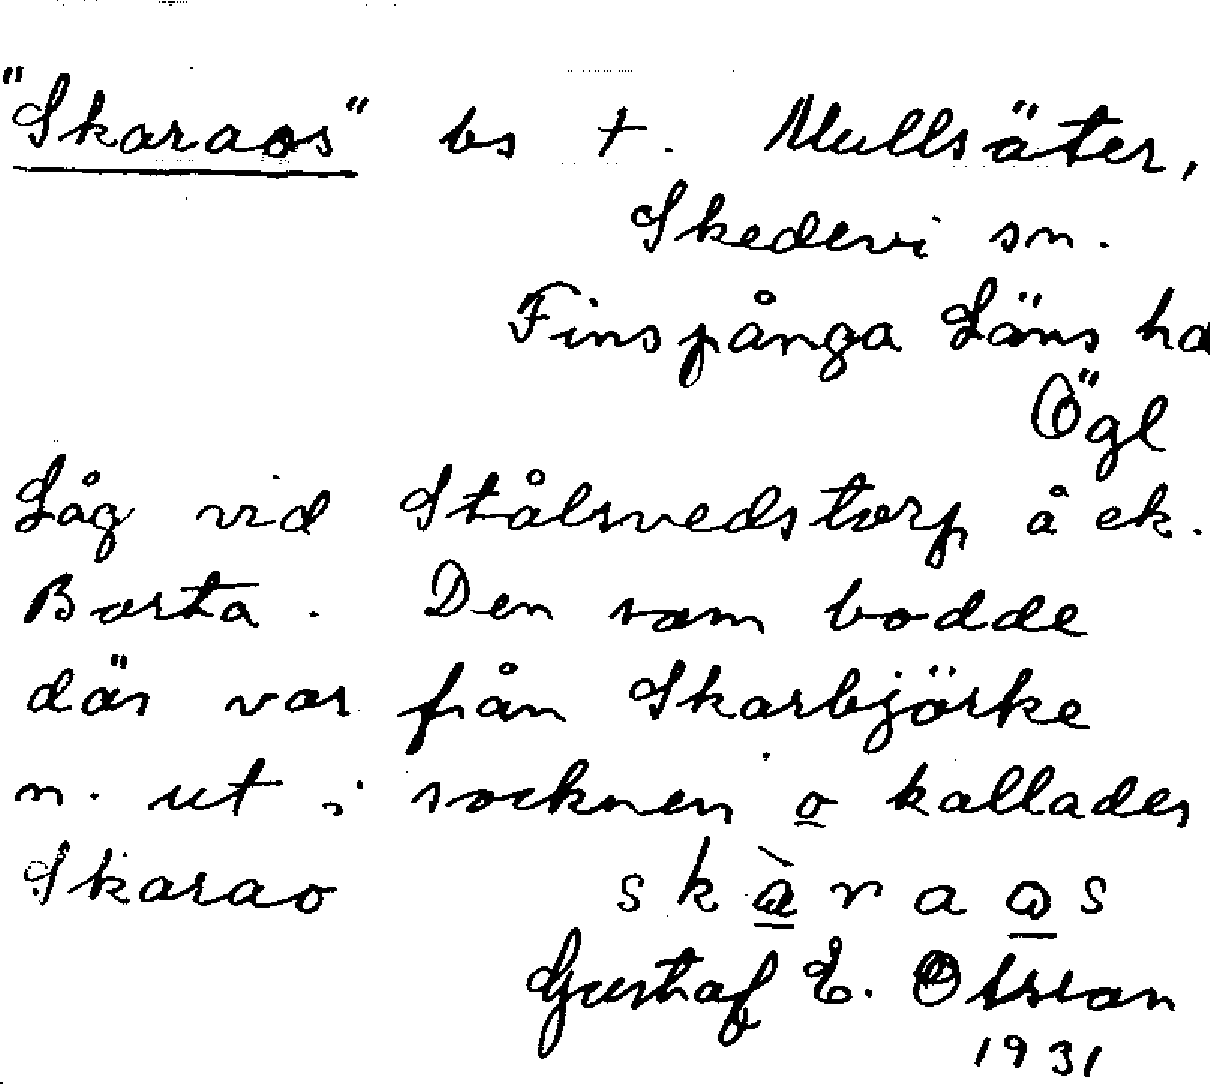 "Skaraos" bs +. Mullsäter,
Skedevi sn.
Finspånga Läns hd
Ögl
Låg vid Stålsvedstorp å ek.
Borta. Den som bodde
där var från Skarbjörke
n. ut i socknen o kallades
Skarao skàraos
Gustaf E. Olsson
1931